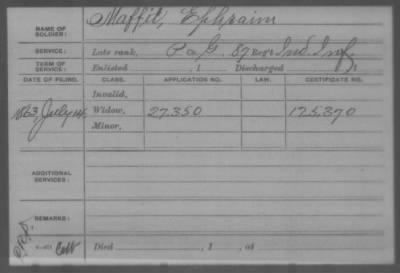 NAME OF SOLDIER: Maffit, Ephraim
SERVICE: Late rank, P Co G. 87 Reg't Ind. Inf.
TERM OF SERVICE: Enlisted , 1 Discharged , 1
DATE OF FILING. CLASS. APPLICATION NO. LAW. CERTIFICATE NO.
Invalid,
1863, July 14. Widow, 27.350 175.370
Minor,
ADDITIONAL SERVICES:
REMARKS:
Died , 1 , at